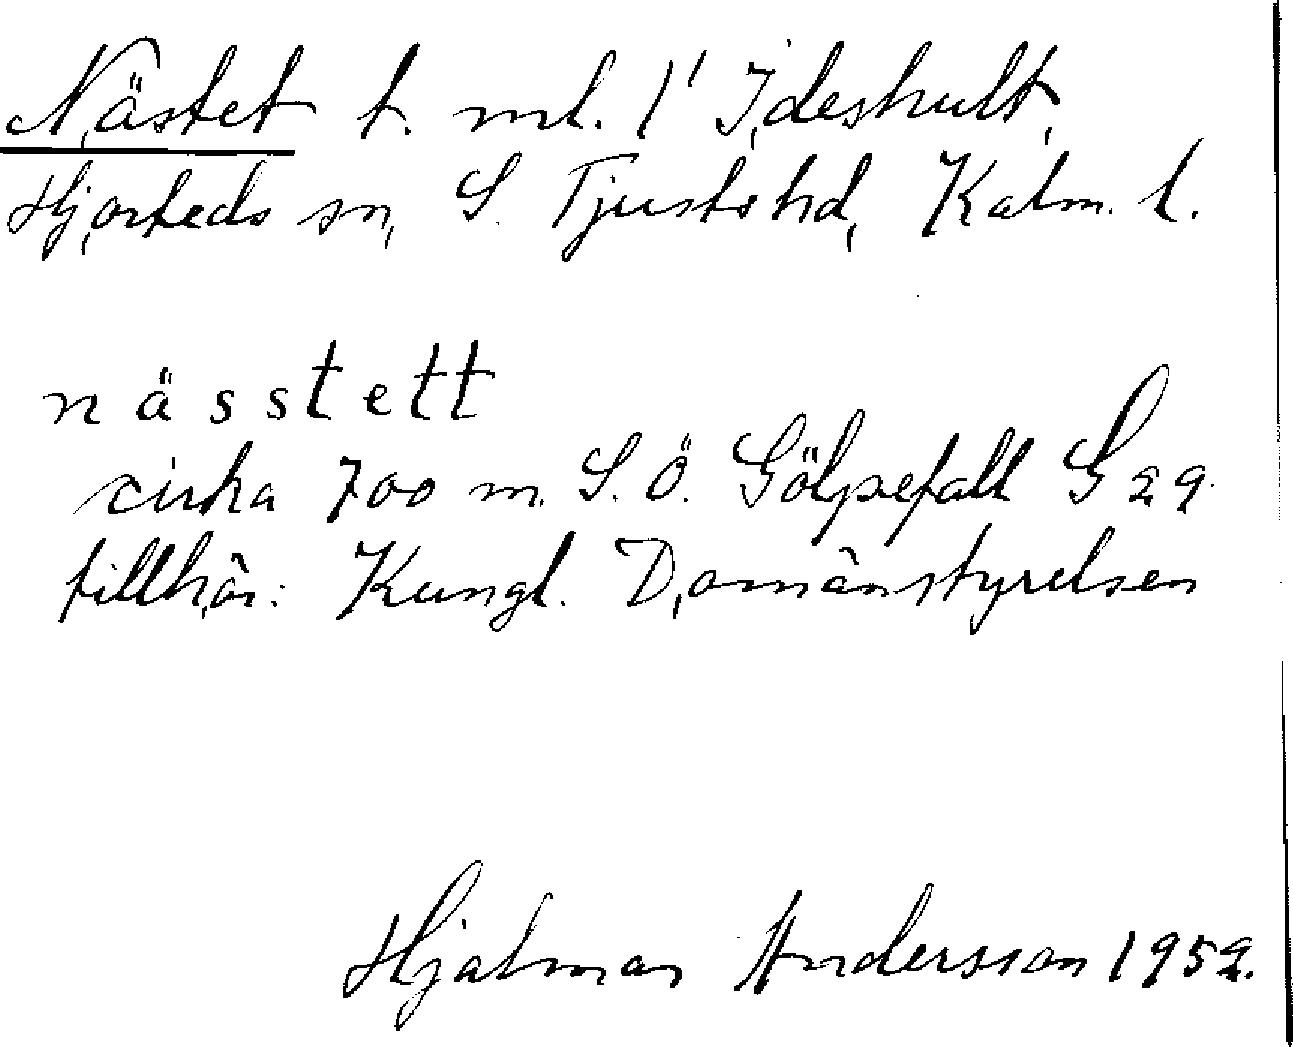 Nästet t. ml. 1' Ideshult,
Hjorteds sn, S. Tjusts hd, Kalm. l.
nässtett
cirka 700 m. S.Ö. Gölpefall
tillhör: Kungl. Domänstyrelsen
Hjalmar Andersson 1952.